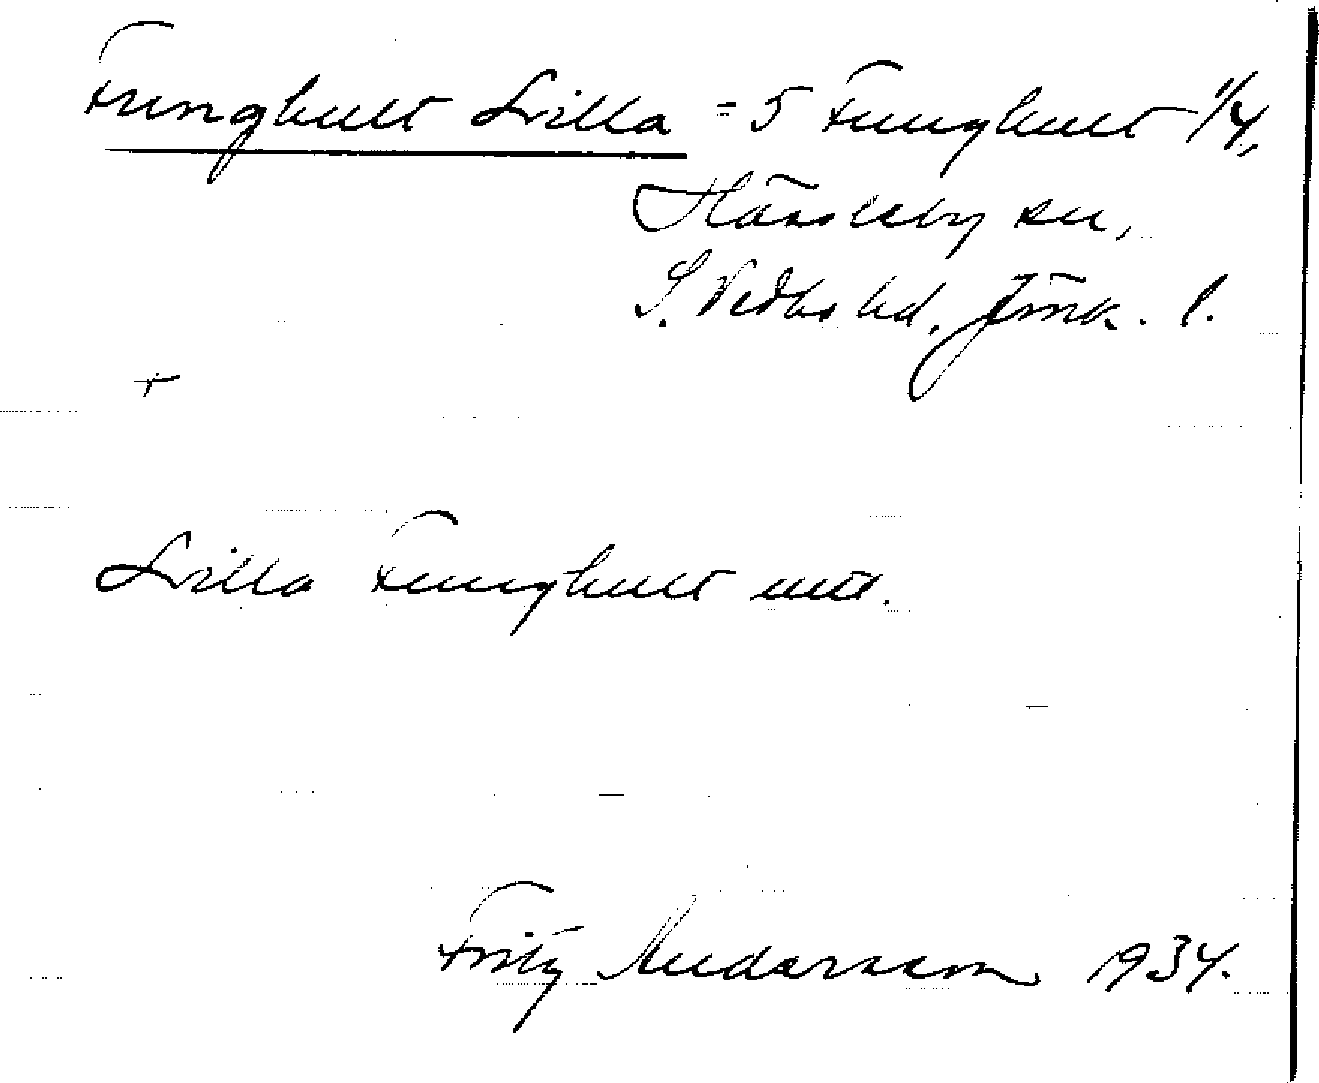 Funghult Lilla = 5 Funghult 1/4,
Hässleby sn,
S. Vedbo hd, Jönk. l.
+
Lilla Funghult utt.
Fritz Andersson 1934.